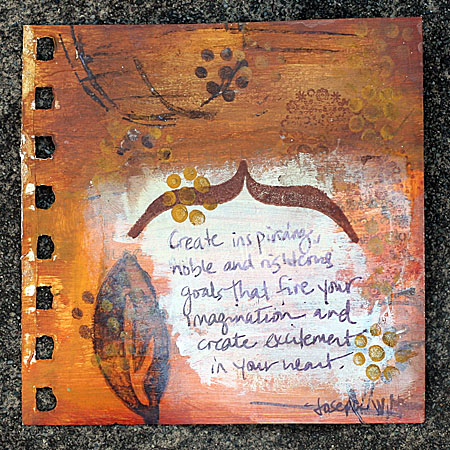 Create inspiring,
noble and righteous
goals that fire your
imagination and
create excitement
in your heart.